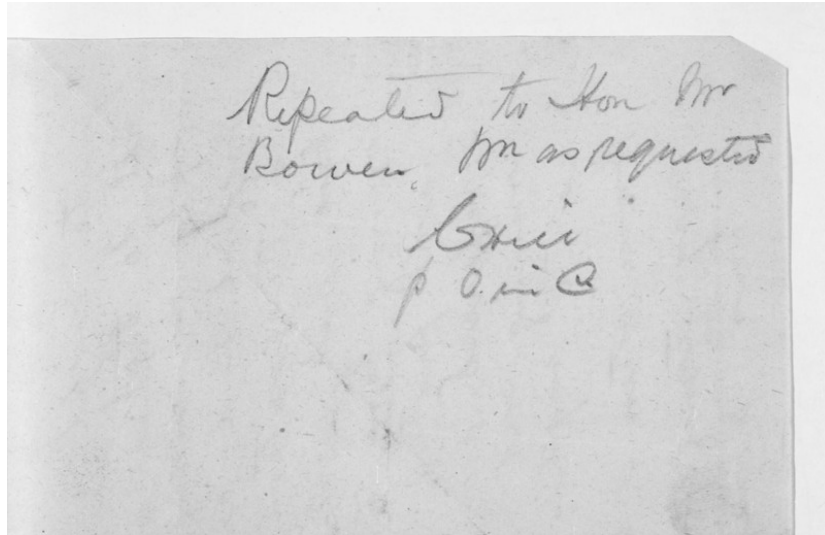 Repeated to Hon Mr
Bowen, as requested
C Hill
p O. in C